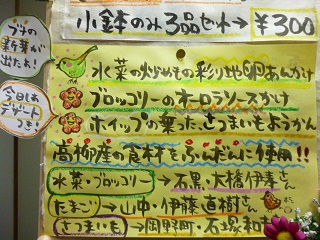 小鉢のみ3品セット→ ¥300
今日もデザートつき!
水菜の炒めもの彩り地卵あんかけ
ブロッコリーのオーロラソースがけ
ホイップの乗ったさつまいもようかん
高柳産の食材をふんだんに使用!!
水菜・ブロッコリー→石黒・大橋伊寿さん
たまご→山中・伊藤直樹さん
さつまいも→岡野町・石塚和